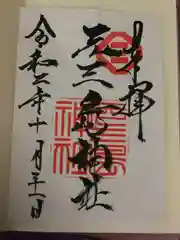 奉拝
元三島神社
令和二年十月